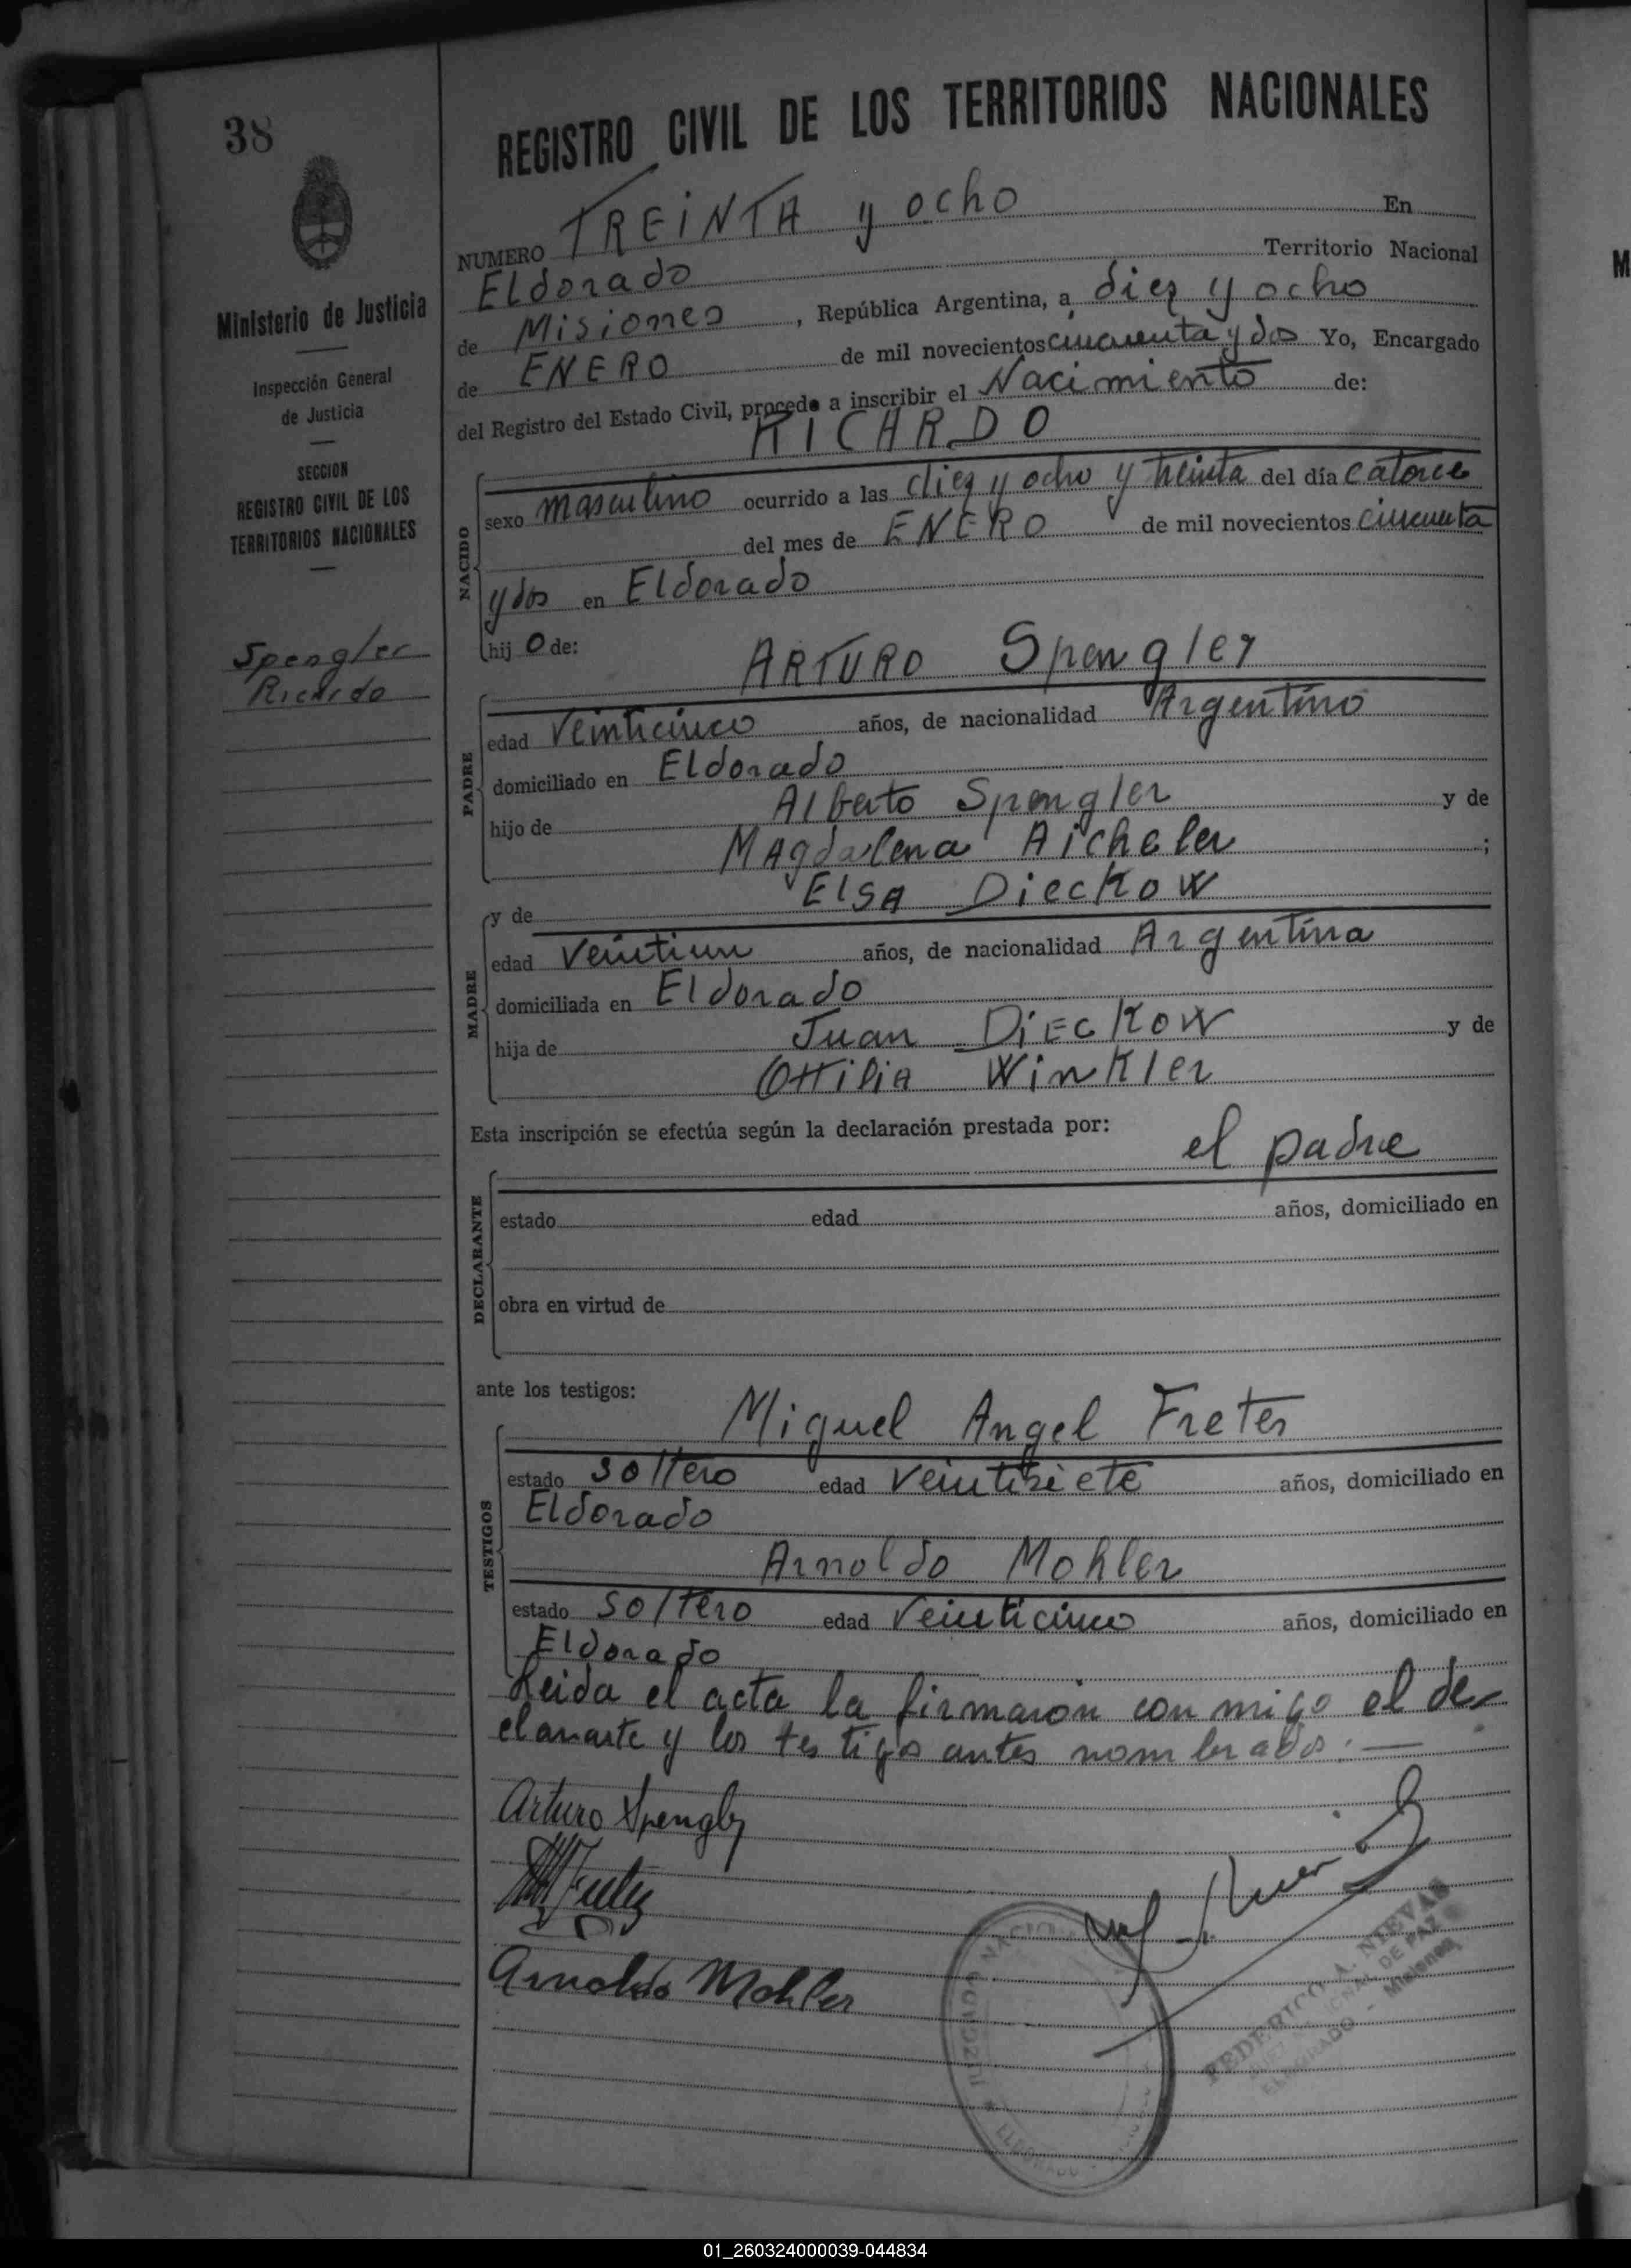 38
Ministerio de Justicia
Inspección General
de Justicia
SECCION
REGISTRO CIVIL DE LOS
TERRITORIOS NACIONALES
Spengler
Ricardo
REGISTRO CIVIL DE LOS TERRITORIOS NACIONALES
NUMERO TREINTA y ocho En
Eldorado Territorio Nacional
de Misiones, República Argentina, a diez y ocho
de ENERO de mil novecientos cincuenta y dos Yo, Encargado
del Registro del Estado Civil, procedo a inscribir el Nacimiento de:
RICARDO
NACIDO
sexo masculino ocurrido a las diez y ocho y treinta del día catorce
del mes de ENERO de mil novecientos cincuenta
y dos en Eldorado
hij o de:
ARTURO Spengler
PADRE
edad veinticinco años, de nacionalidad Argentino
domiciliado en Eldorado
hijo de Alberto Spengler y de
Magdalena Aicheler ;
y de Elsa Dieckow
MADRE
edad veintiun años, de nacionalidad Argentina
domiciliada en Eldorado
hija de Juan Dieckow y de
Ottilia Winkler
Esta inscripción se efectúa según la declaración prestada por:
el padre
DECLARANTE
estado edad años, domiciliado en
obra en virtud de
ante los testigos:
Miguel Angel Fretes
TESTIGOS
estado soltero edad veintisiete años, domiciliado en
Eldorado
Arnoldo Mohler
estado soltero edad veinticinco años, domiciliado en
Eldorado
Leida el acta la firmaron con migo el de-
clarante y los testigos antes nombrados.—
Arturo Spengler
Arnoldo Mohler
FEDERICO A. NIEVAS
JUEZ NACIONAL DE PAZ
ELDORADO - Misiones
01_260324000039-044834